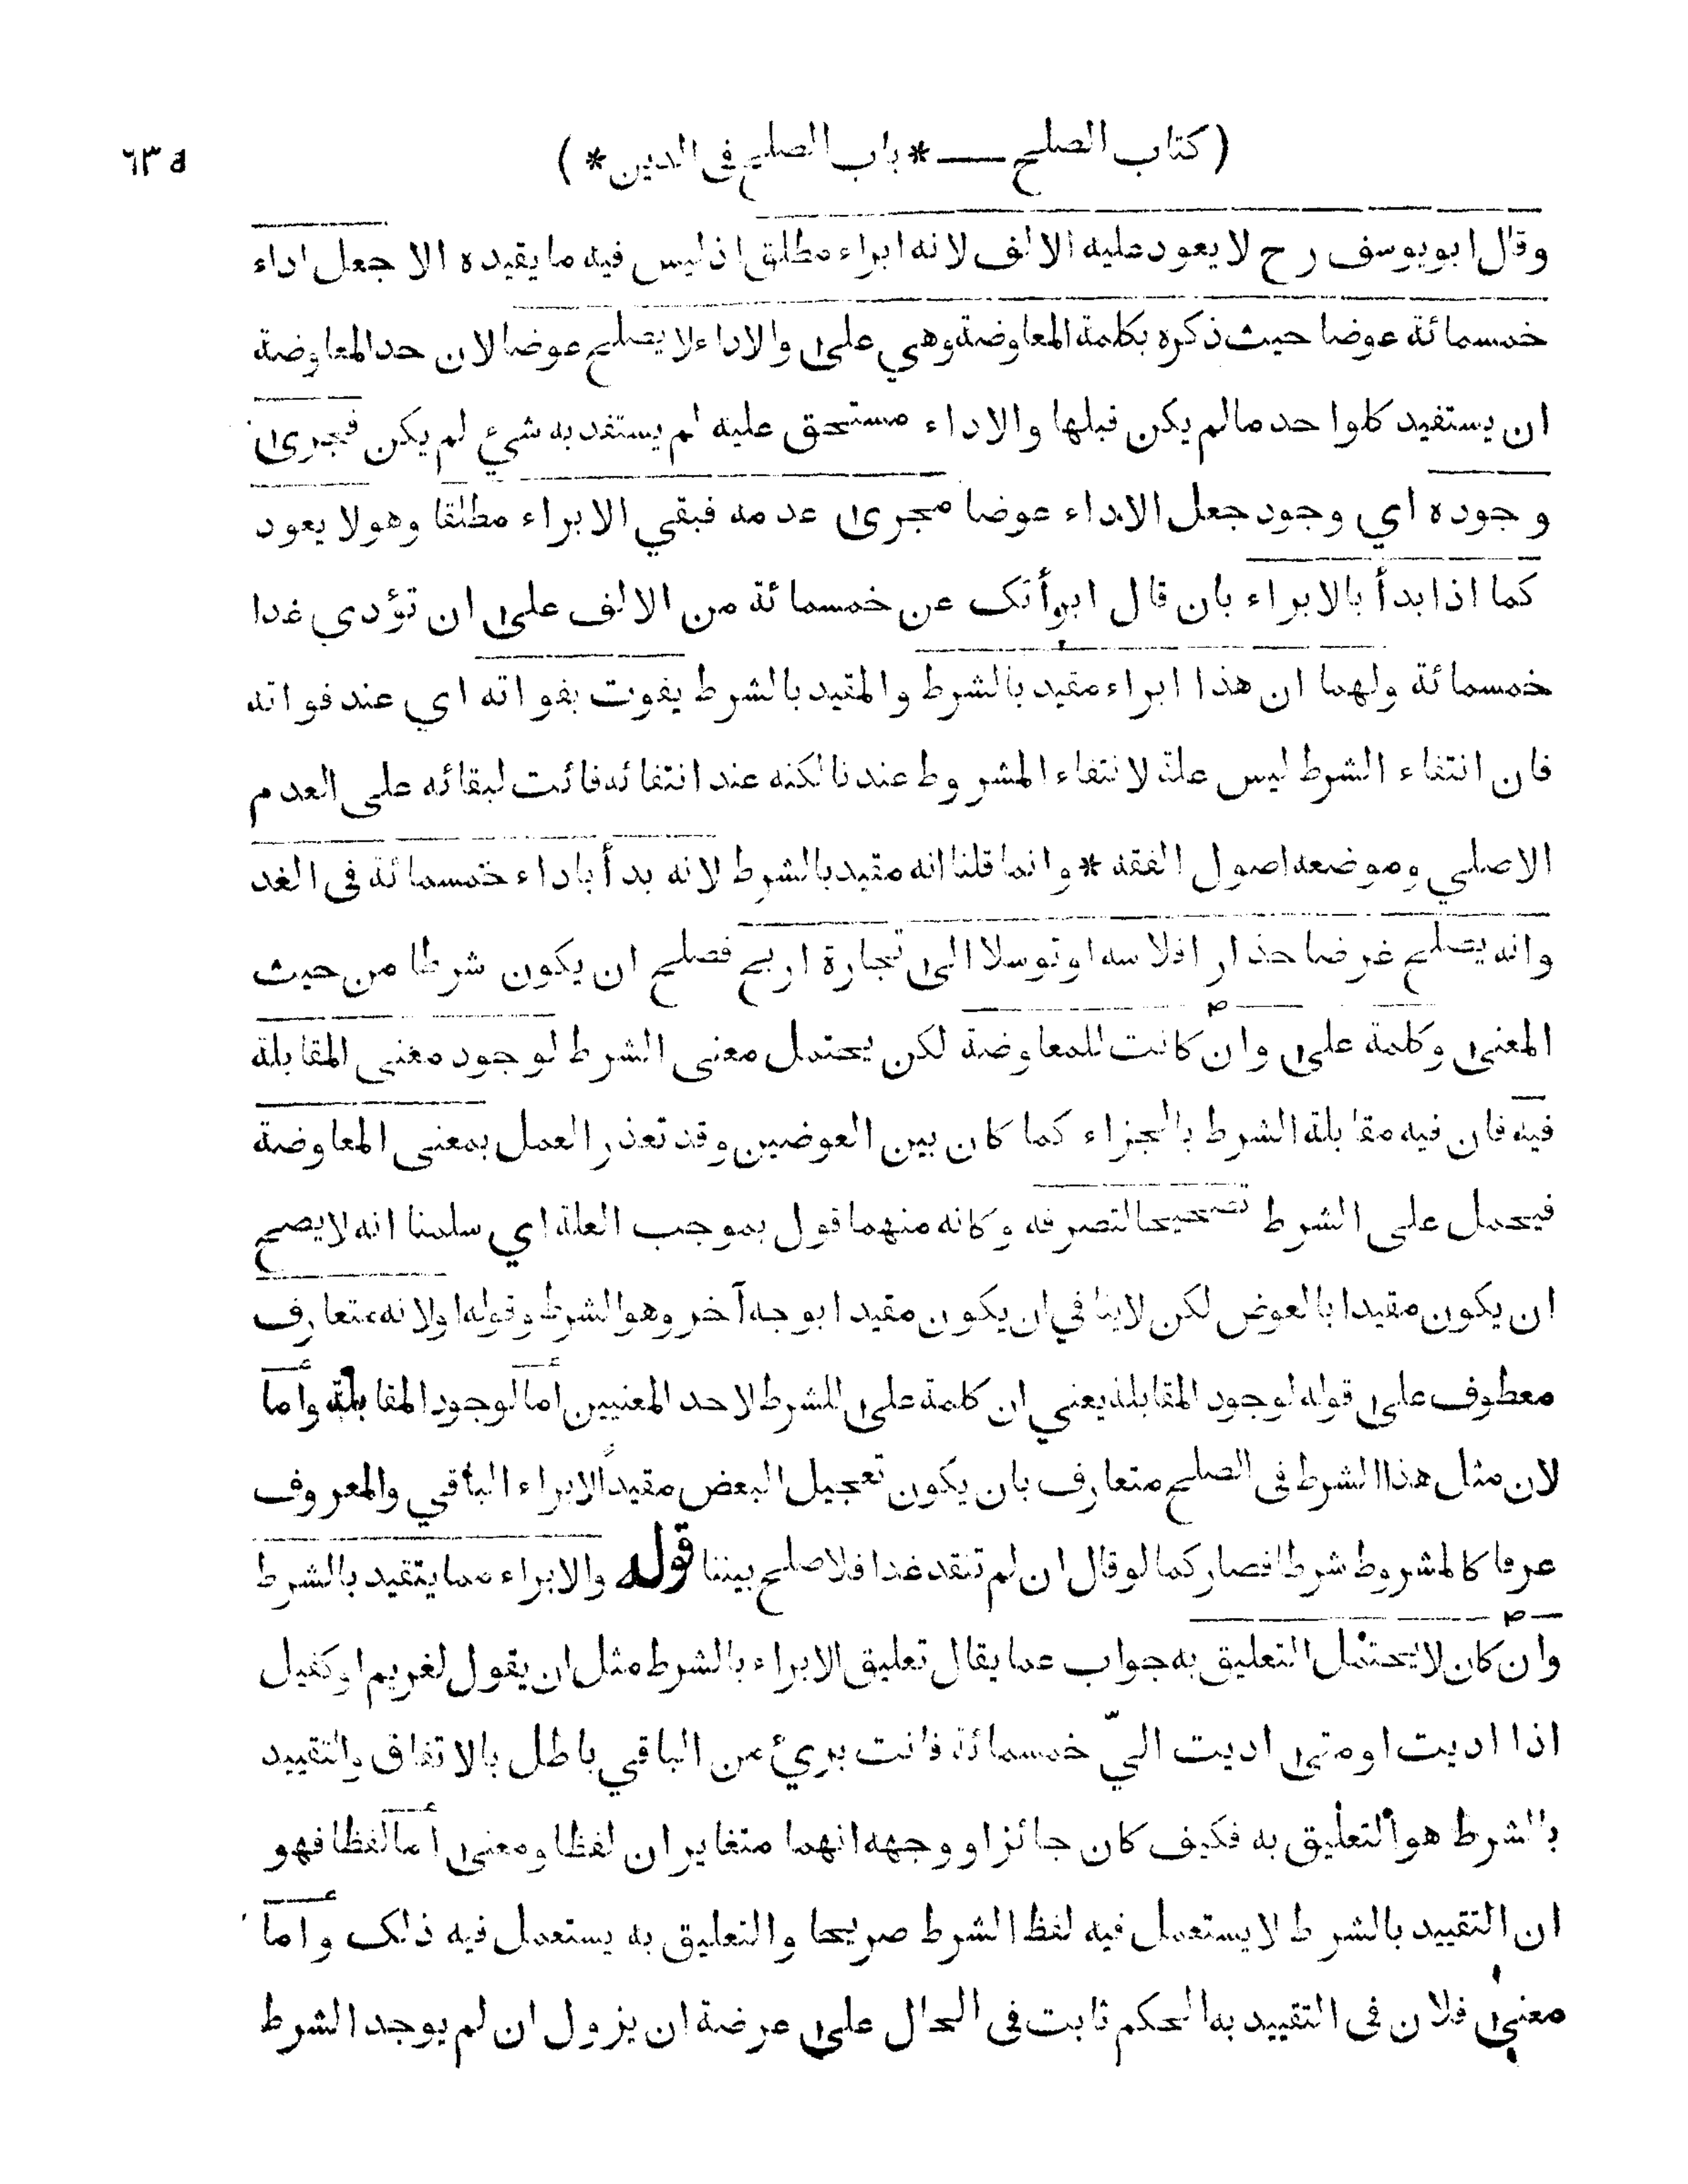 (كتاب الصلح — * باب الصلح فى الدين *) ٥٦٣
وقال ابويوسف رح لا يعود عليه الالف لانه ابراء مطلق اذ ليس فيه ما يقيده الا جعل اداء
خمسمائة عوضا حيث ذكره بكلمة المعاوضة وهي على والاداء لا يصلح عوضا لان حد المعاوضة
ان يستفيد كلواحد مالم يكن قبلها والاداء مستحق عليه لم يستفد به شيء لم يكن فجرى
وجوده اي وجود جعل الاداء عوضا مجرى عدمه فبقي الابراء مطلقا وهو لا يعود
كما اذا بدأ بالابراء بان قال ابرأتك عن خمسمائة من الالف على ان تؤدي غدا
خمسمائة ولهما ان هذا ابراء مقيد بالشرط والمقيد بالشرط يفوت بفواته اي عند فواته
فان انتفاء الشرط ليس علة لانتفاء المشروط عندنا لكنه عند انتفائه فائت لبقائه على العدم
الاصلي وموضعه اصول الفقه * وانما قلنا انه مقيد بالشرط لانه بدأ باداء خمسمائة فى الغد
وانه يصلح غرضا حذار افلاسه او توسلا الى تجارة اربح فصلح ان يكون شرطا من حيث
المعنى وكلمة على وان كانت للمعاوضة لكن يحتمل معنى الشرط لوجود معنى المقابلة
فيه فان فيه مقابلة الشرط بالجزاء كما كان بين العوضين وقد تعذر العمل بمعنى المعاوضة
فيحمل على الشرط تصحيحا لتصرفه وكانه منهما قول بموجب العلة اي سلمنا انه لا يصح
ان يكون مقيدا بالعوض لكن لاينافي ان يكون مقيدا بوجه آخر وهو الشرط وقوله او لانه متعارف
معطوف على قوله لوجود المقابلة يعني ان كلمة على للشرط لاحد المعنيين أما لوجود المقابلة وأما
لان مثل هذا الشرط فى الصلح متعارف بان يكون تعجيل البعض مقيداً لابراء الباقي والمعروف
عرفا كالمشروط شرطا فصار كما لو قال ان لم تنقد غدا فلا صلح بيننا قوله والابراء مما يتقيد بالشرط
وان كان لا يحتمل التعليق به جواب عما يقال تعليق الابراء بالشرط مثل ان يقول لغريم او كفيل
اذا اديت او متى اديت اليّ خمسمائة فانت بريئ من الباقي باطل بالاتفاق والتقييد
بالشرط هو التعليق به فكيف كان جائزا ووجهه انهما متغايران لفظا ومعنى أما لفظا فهو
ان التقييد بالشرط لا يستعمل فيه لفظ الشرط صريحا والتعليق به يستعمل فيه ذلك وأما
معنى فلان فى التقييد به الحكم ثابت فى الحال على عرضة ان يزول ان لم يوجد الشرط